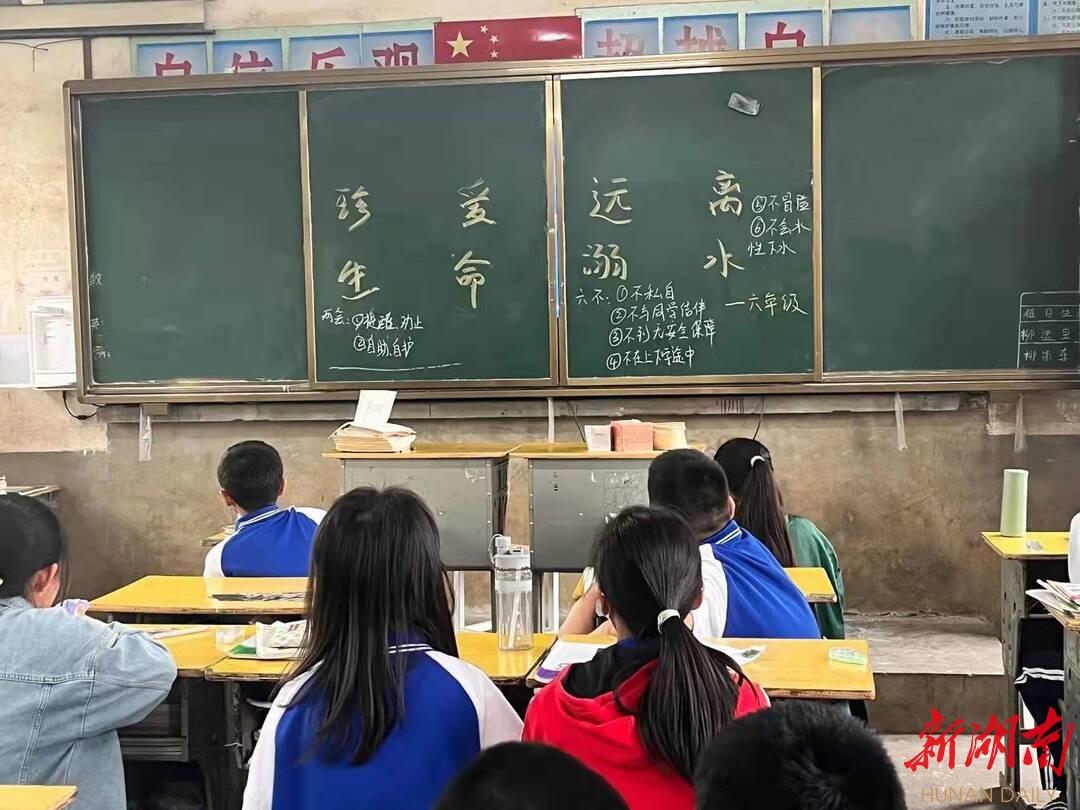 自 信 乐 观
超 越 自
珍 爱
生 命
两会:①提醒、劝止
②自助、自护
远 离
溺 水
六不:①不私自
②不与同学结伴
③不到无安全保障
④不在上下学途中
⑤不冒险
⑥不会水
性下水
一六年级
值日生
新湖南
HUNAN DAILY